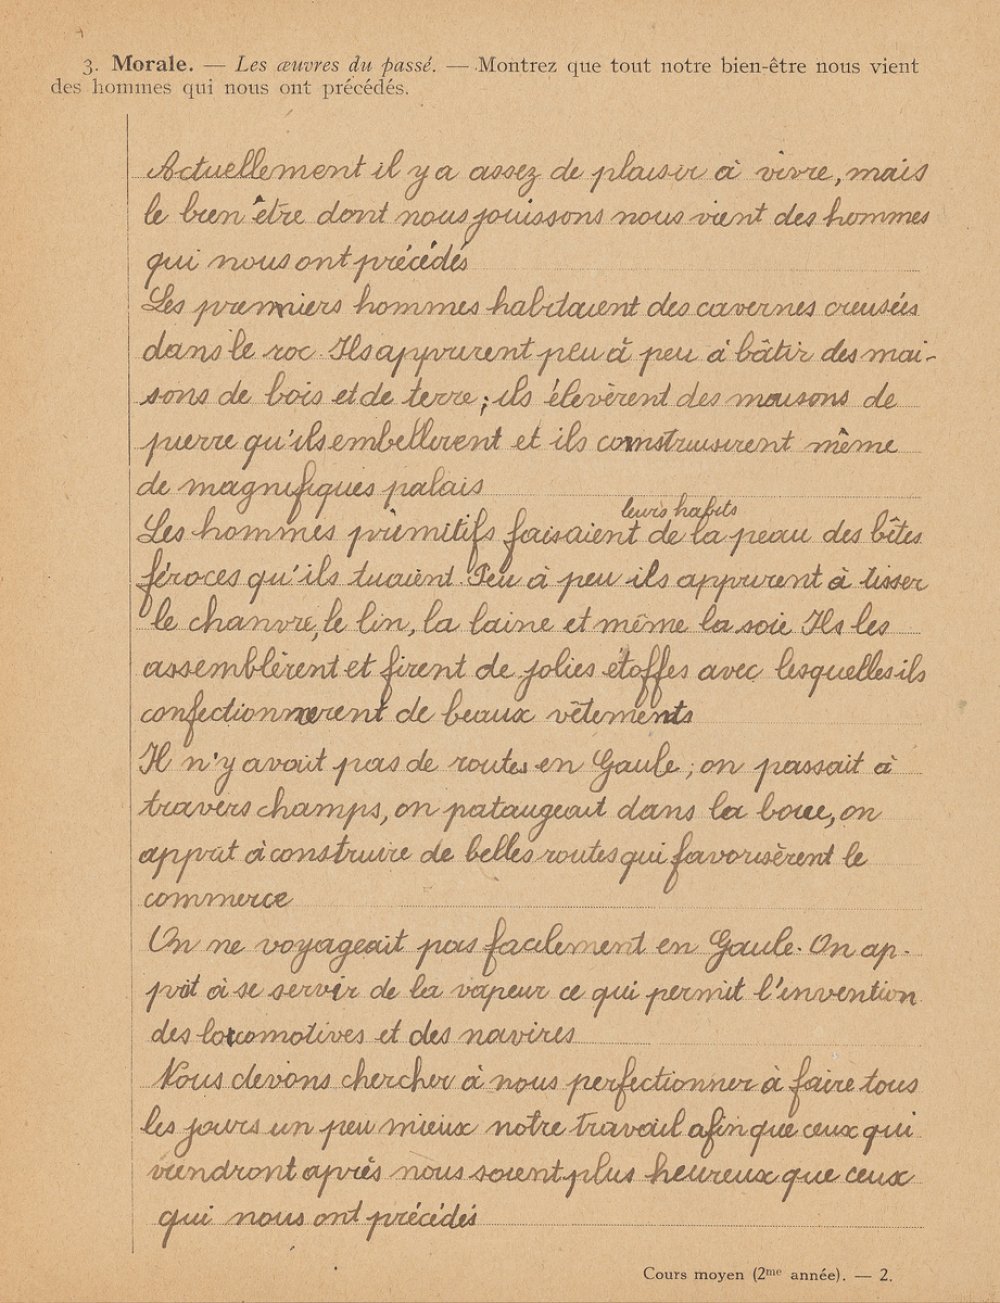 3. Morale. — Les œuvres du passé. — Montrez que tout notre bien-être nous vient
des hommes qui nous ont précédés.
Actuellement il y a assez de plaisir à vivre, mais
le bien être dont nous jouissons nous vient des hommes
qui nous ont précédés
Les premiers hommes habitaient des cavernes creusées
dans le roc. Ils apprirent peu à peu à bâtir des mai-
sons de bois et de terre ; ils élevèrent des maisons de
pierre qu'ils embellirent et ils construisirent même
de magnifiques palais
leurs habits
Les hommes primitifs faisaient de la peau des bêtes
féroces qu'ils tuaient. Peu à peu ils apprirent à tisser
le chanvre, le lin, la laine et même la soie Ils les
assemblèrent et firent de jolies étoffes avec lesquelles ils
confectionnerent de beaux vêtements
Il n'y avait pas de routes en Gaule ; on passait à
travers champs, on pataugeait dans la boue, on
apprit à construire de belles routes qui favorisèrent le
commerce
On ne voyageait pas facilement en Gaule. On ap-
prit à se servir de la vapeur ce qui permit l'invention
des locomotives et des navires
Nous devons chercher à nous perfectionner à faire tous
les jours un peu mieux notre travail afin que ceux qui
viendront après nous soient plus heureux que ceux
qui nous ont précédés
Cours moyen (2me année). — 2.